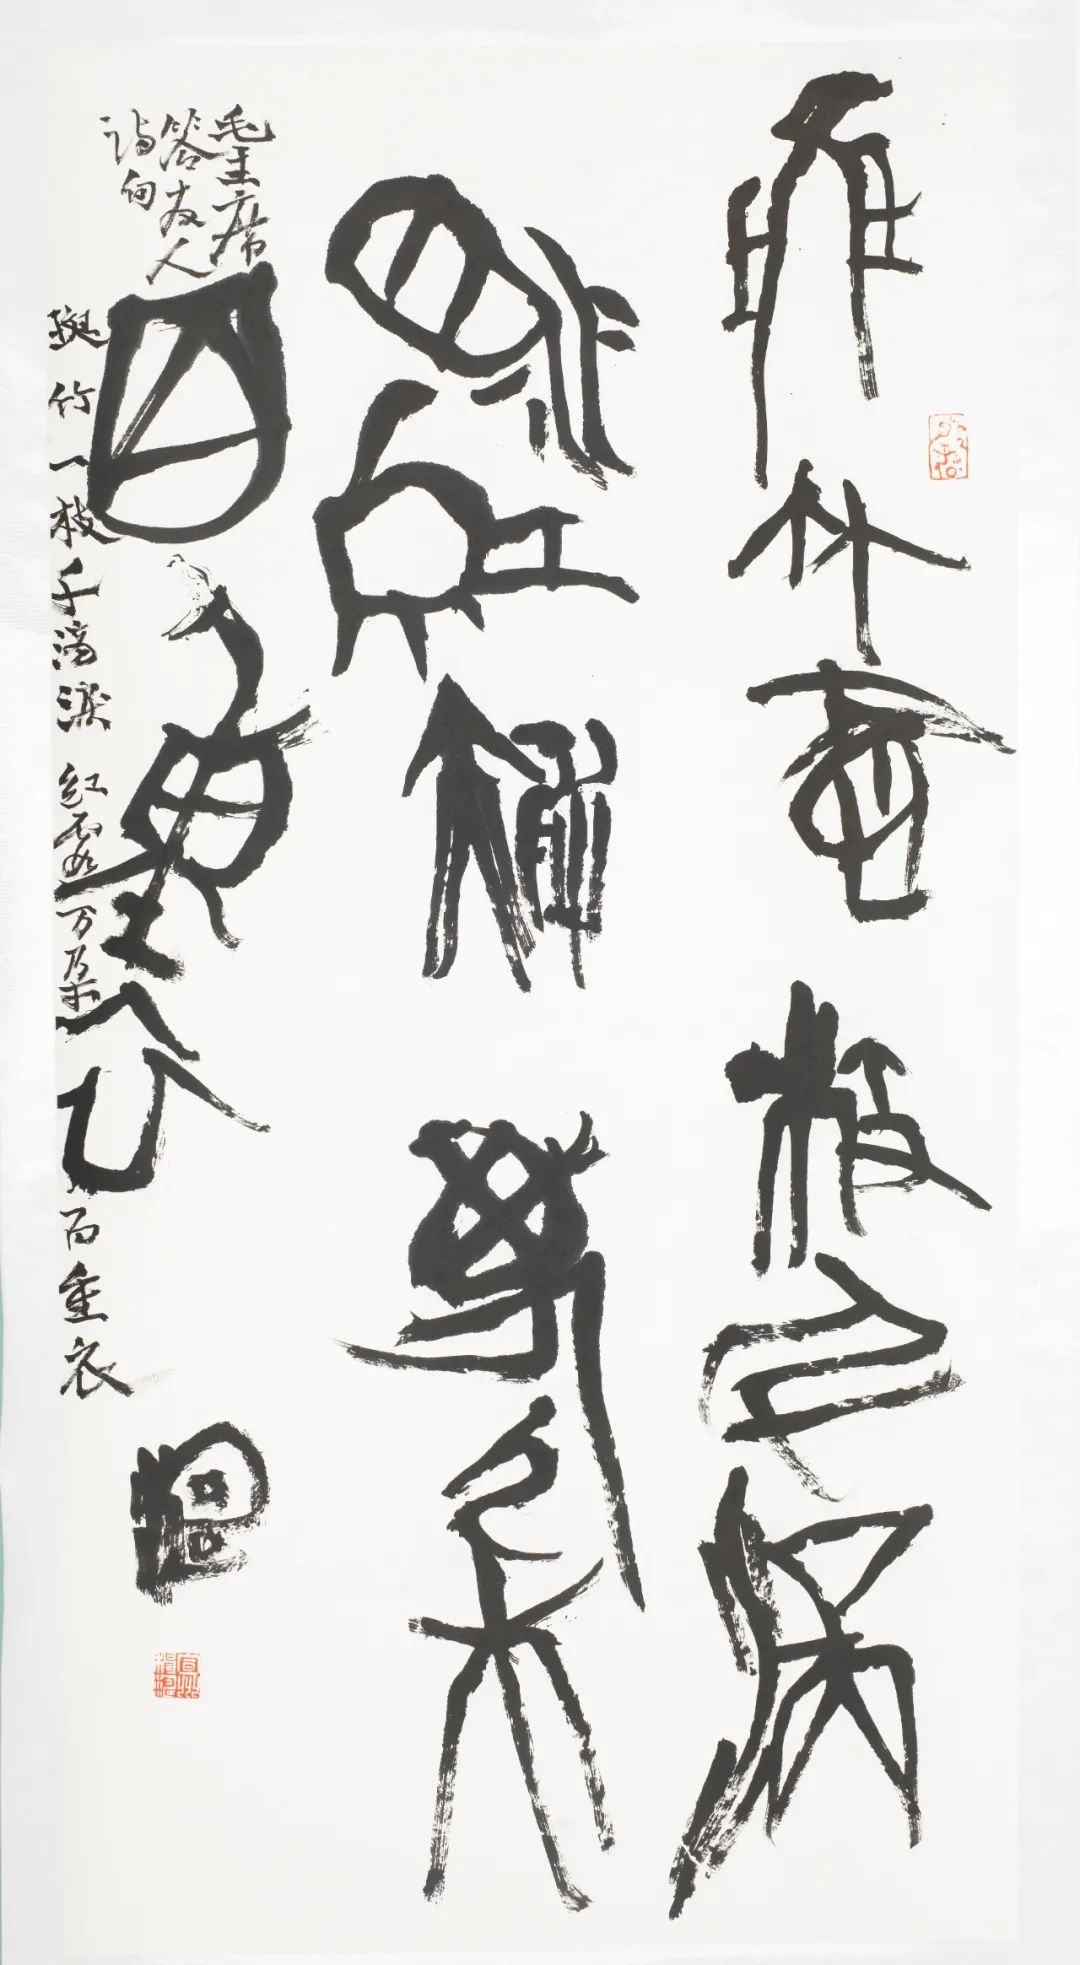 斑竹壹枝千滴
淚紅霞萬朵
百重衣
毛主席
答友人
诗句
斑竹一枝千滴淚 紅霞万朵百重衣